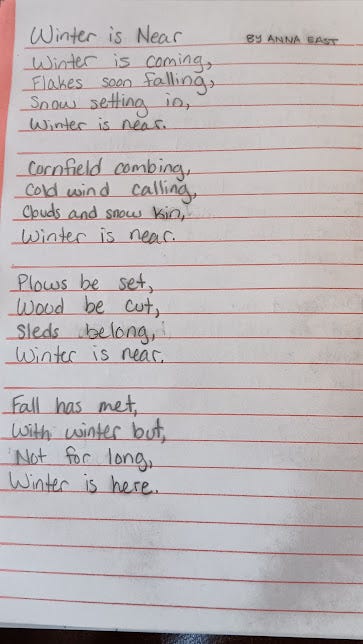 Winter is Near BY ANNA EAST
Winter is coming,
Flakes soon falling,
Snow setting in,
Winter is near.
Cornfield combing,
Cold wind calling,
Clouds and snow kin,
Winter is near.
Plows be set,
Wood be cut,
Sleds belong,
Winter is near.
Fall has met,
With winter but,
Not for long,
Winter is here.